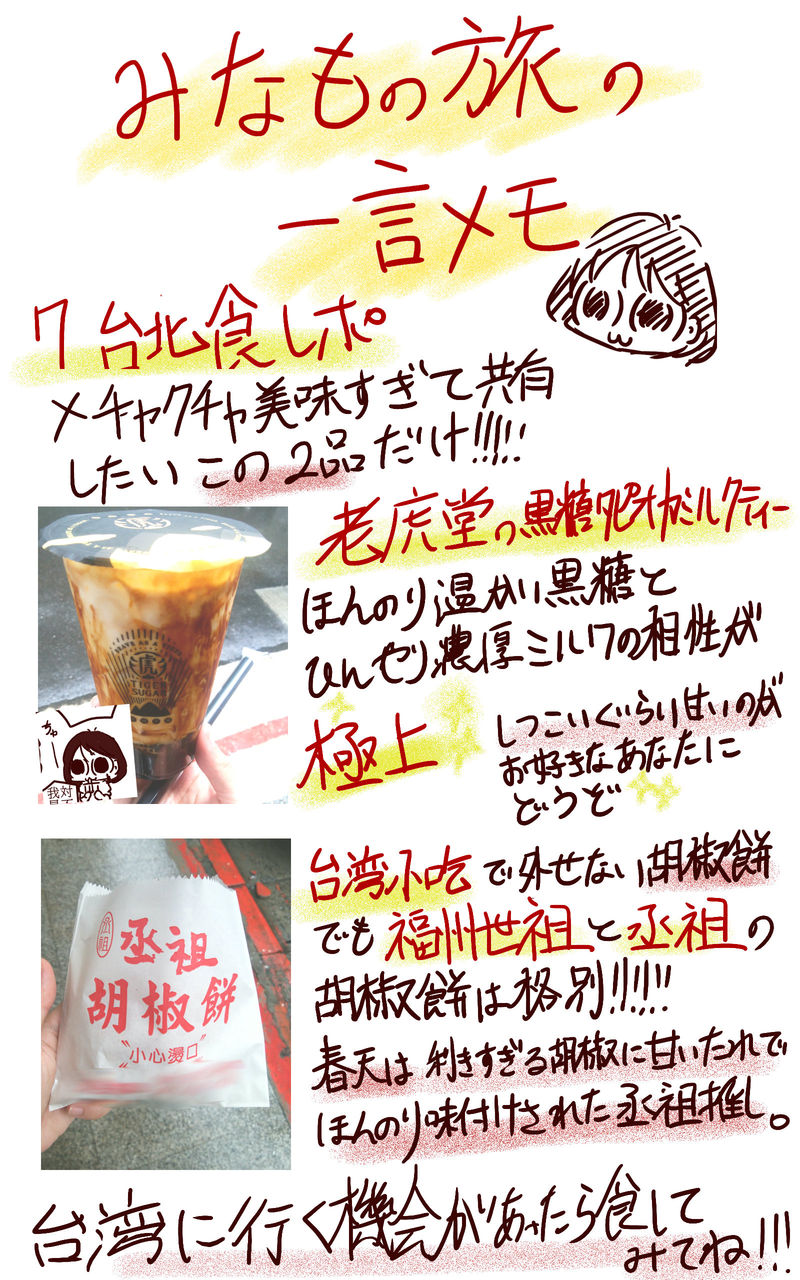 みなもの旅の
一言メモ
7 台北食レポ
メチャクチャ美味すぎて共有
したいこの2品だけ!!!!!
老虎堂の黒糖タピオカミルクティー
ほんのり温かい黒糖と
ひんやり濃厚ミルクの相性が
極上
しつこいぐらい甘いのが
お好きなあなたに
どうぞ
虎
TIGER
SUGAR
我対
台湾小吃で外せない胡椒餅
でも福州世祖と丞祖の
胡椒餅は格別!!!!!
春天は利きすぎる胡椒に甘いたれで
ほんのり味付けされた丞祖推し。
丞祖
丞祖
胡椒餅
"小心燙口"
台湾に行く機会があったら食して
みてね!!!